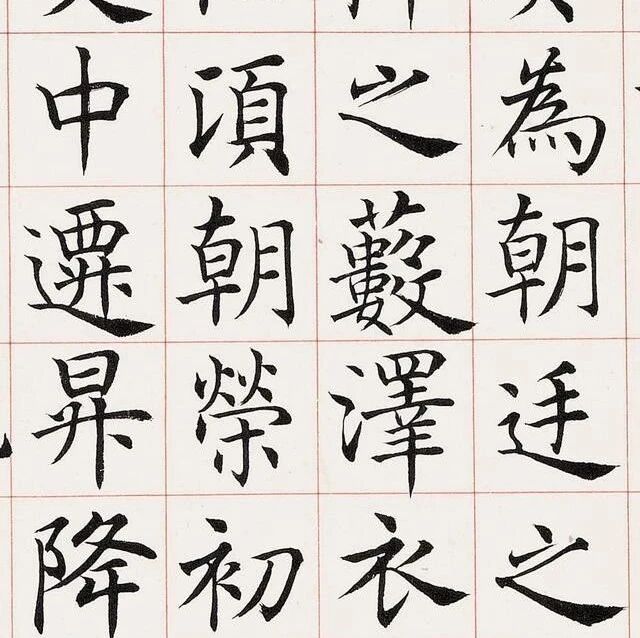 為朝廷之
之藪澤衣
湏朝榮初
中遷昇降